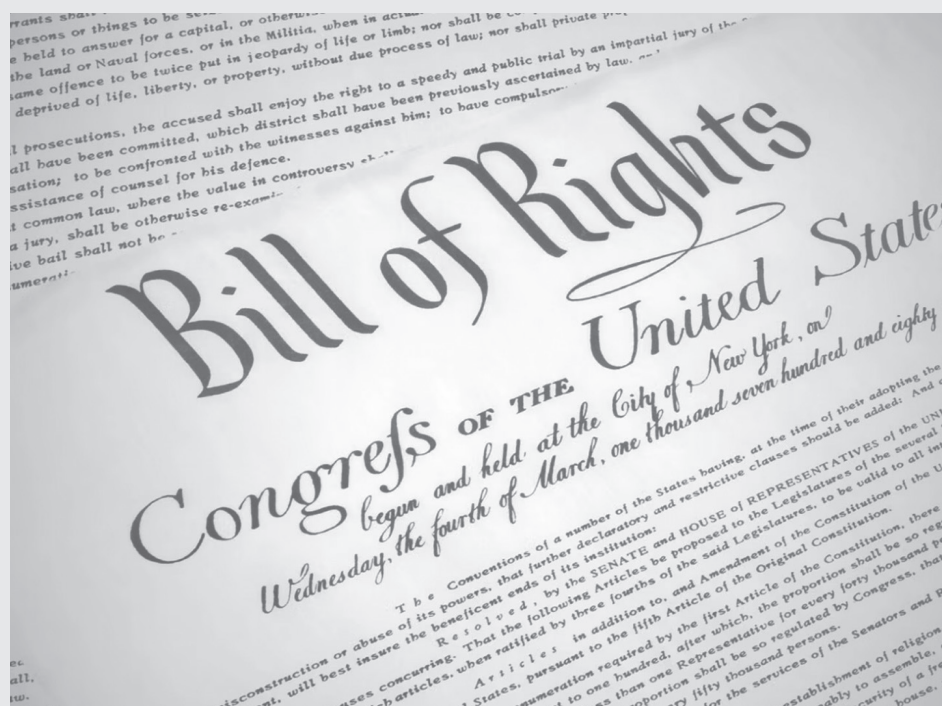 persons or things to be
be held to answer for a capital, or otherw
the land or Naval forces, or in the Militia, when in
same offence to be twice put in jeopardy of life or limb; nor shall be
deprived of life, liberty, or property, without due process of law; nor shall private
l prosecutions, the accused shall enjoy the right to a speedy and public trial by an impartial jury of the
all have been committed, which district shall have been previously ascertained by law,
sation; to be confronted with the witnesses against him; to have compulsor
ssistance of counsel for his defence.
t common law, where the value in controversy
a jury, shall be otherwise re-exami
ive bail shall not be
Bill of Rights
Congreſs OF THE United States
begun and held at the City of New York, on
Wednesday, the fourth of March, one thousand seven hundred and eighty
The Conventions of a number of the States having, at the time of their adopting the
isconstruction or abuse of its powers, that further declaratory and restrictive clauses should be added: And
nt, will best insure the beneficent ends of its institution:
Resolved, by the SENATE and HOUSE of REPRESENTATIVES of the UN
uses concurring. That the following Articles be proposed to the Legislatures of the several
articles, when ratified by three fourths of the said Legislatures, to be valid to all in
Articles in addition to, and Amendment of the Constitution of the U
States, pursuant to the fifth Article of the Original Constitution.
numeration required by the first Article of the Constitution, there
to one hundred, after which, the proportion shall be so reg
than one Representative for every forty thousand
portion shall be so regulated by Congress, that
ry fifty thousand persons.
the services of the Senators and
establishment of religion
ably to assemble,
curity of a
house,
all.